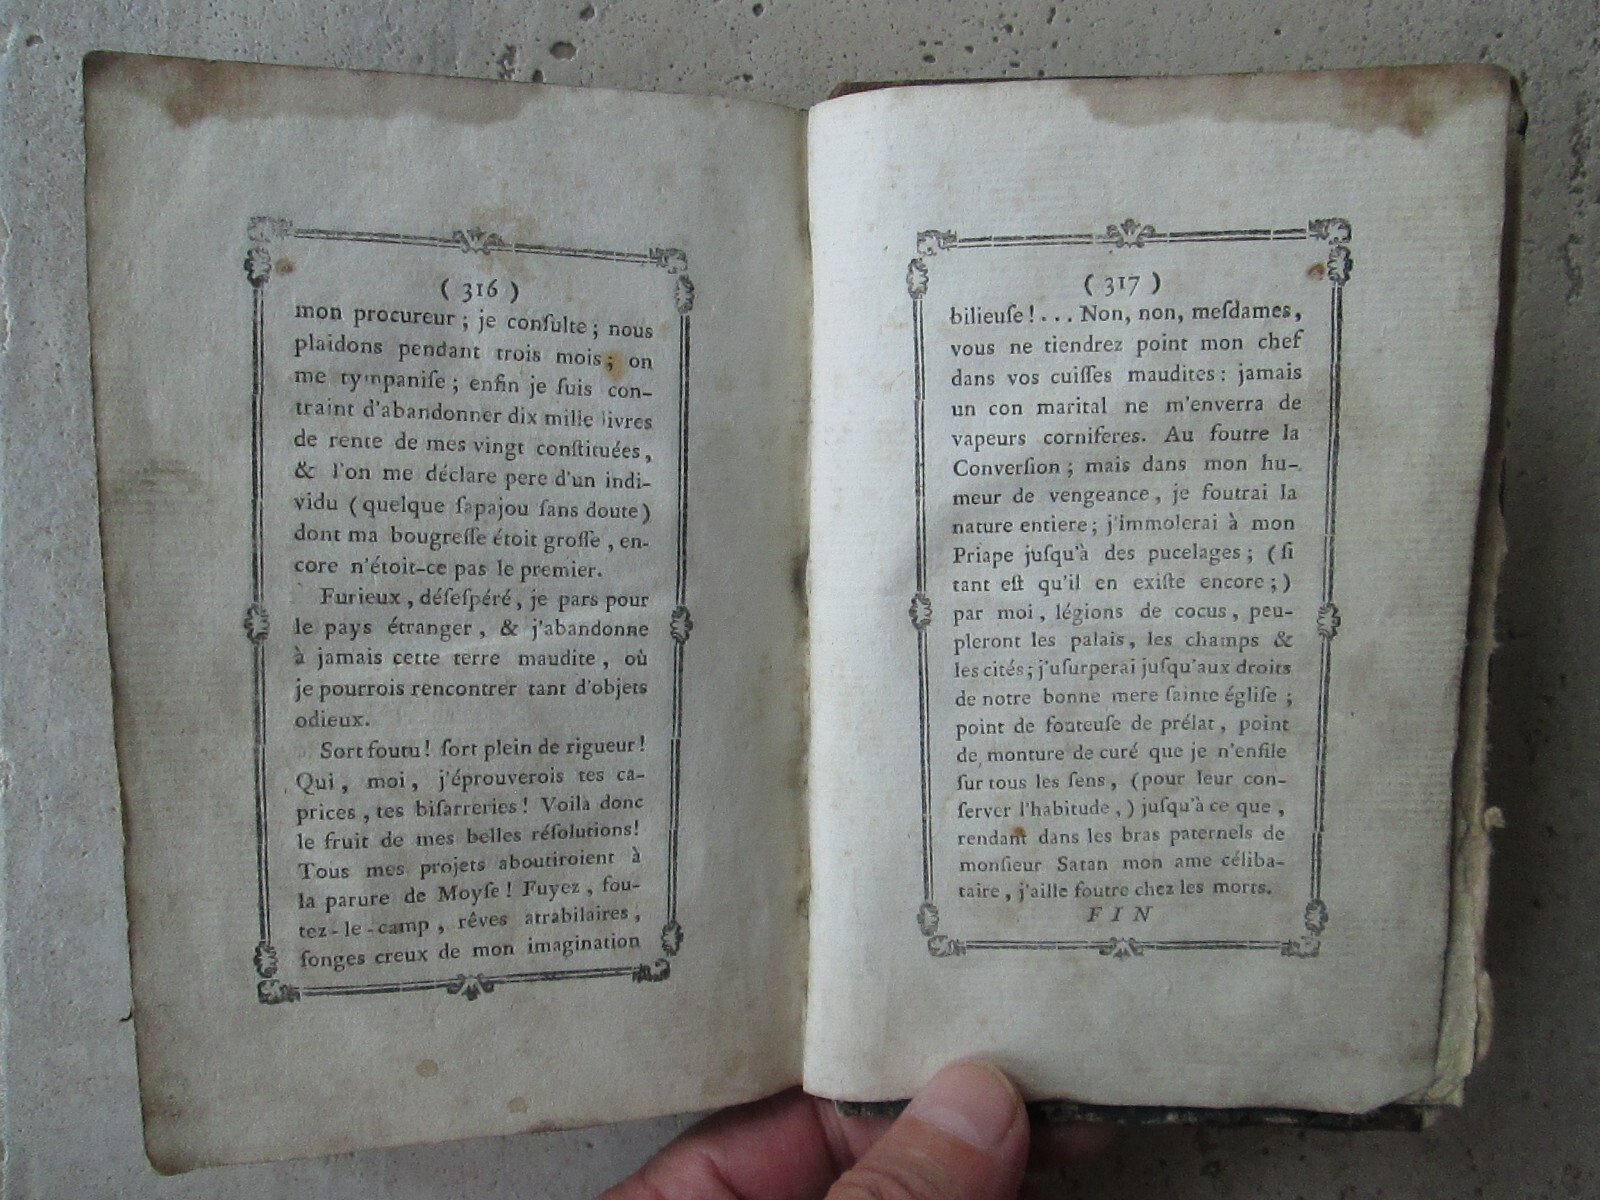 ( 316 )
mon procureur ; je conſulte ; nous
plaidons pendant trois mois ; on
me tympaniſe ; enfin je ſuis con-
traint d'abandonner dix mille livres
de rente de mes vingt conſtituées,
& l'on me déclare pere d'un indi-
vidu ( quelque ſapajou ſans doute )
dont ma bougreſſe étoit groſſe , en-
core n'étoit-ce pas le premier.
Furieux , déſeſpéré , je pars pour
le pays étranger , & j'abandonne
à jamais cette terre maudite , où
je pourrois rencontrer tant d'objets
odieux.
Sort foutu ! ſort plein de rigueur !
Qui , moi , j'éprouverois tes ca-
prices , tes biſarreries ! Voilà donc
le fruit de mes belles réſolutions !
Tous mes projets aboutiroient à
la parure de Moyſe ! Fuyez , fou-
tez-le-camp , rêves atrabilaires ,
ſonges creux de mon imagination
( 317 )
bilieuſe !... Non, non, meſdames,
vous ne tiendrez point mon chef
dans vos cuiſſes maudites : jamais
un con marital ne m'enverra de
vapeurs corniferes. Au foutre la
Converſion ; mais dans mon hu-
meur de vengeance , je foutrai la
nature entiere ; j'immolerai à mon
Priape juſqu'à des pucelages ; ( ſi
tant eſt qu'il en exiſte encore ; )
par moi , légions de cocus , peu-
pleront les palais , les champs &
les cités ; j'uſurperai juſqu'aux droits
de notre bonne mere ſainte égliſe ;
point de fouteuſe de prélat , point
de monture de curé que je n'enfile
ſur tous les ſens , ( pour leur con-
ſerver l'habitude , ) juſqu'à ce que ,
rendant dans les bras paternels de
monſieur Satan mon ame céliba-
taire , j'aille foutre chez les morts.
FIN